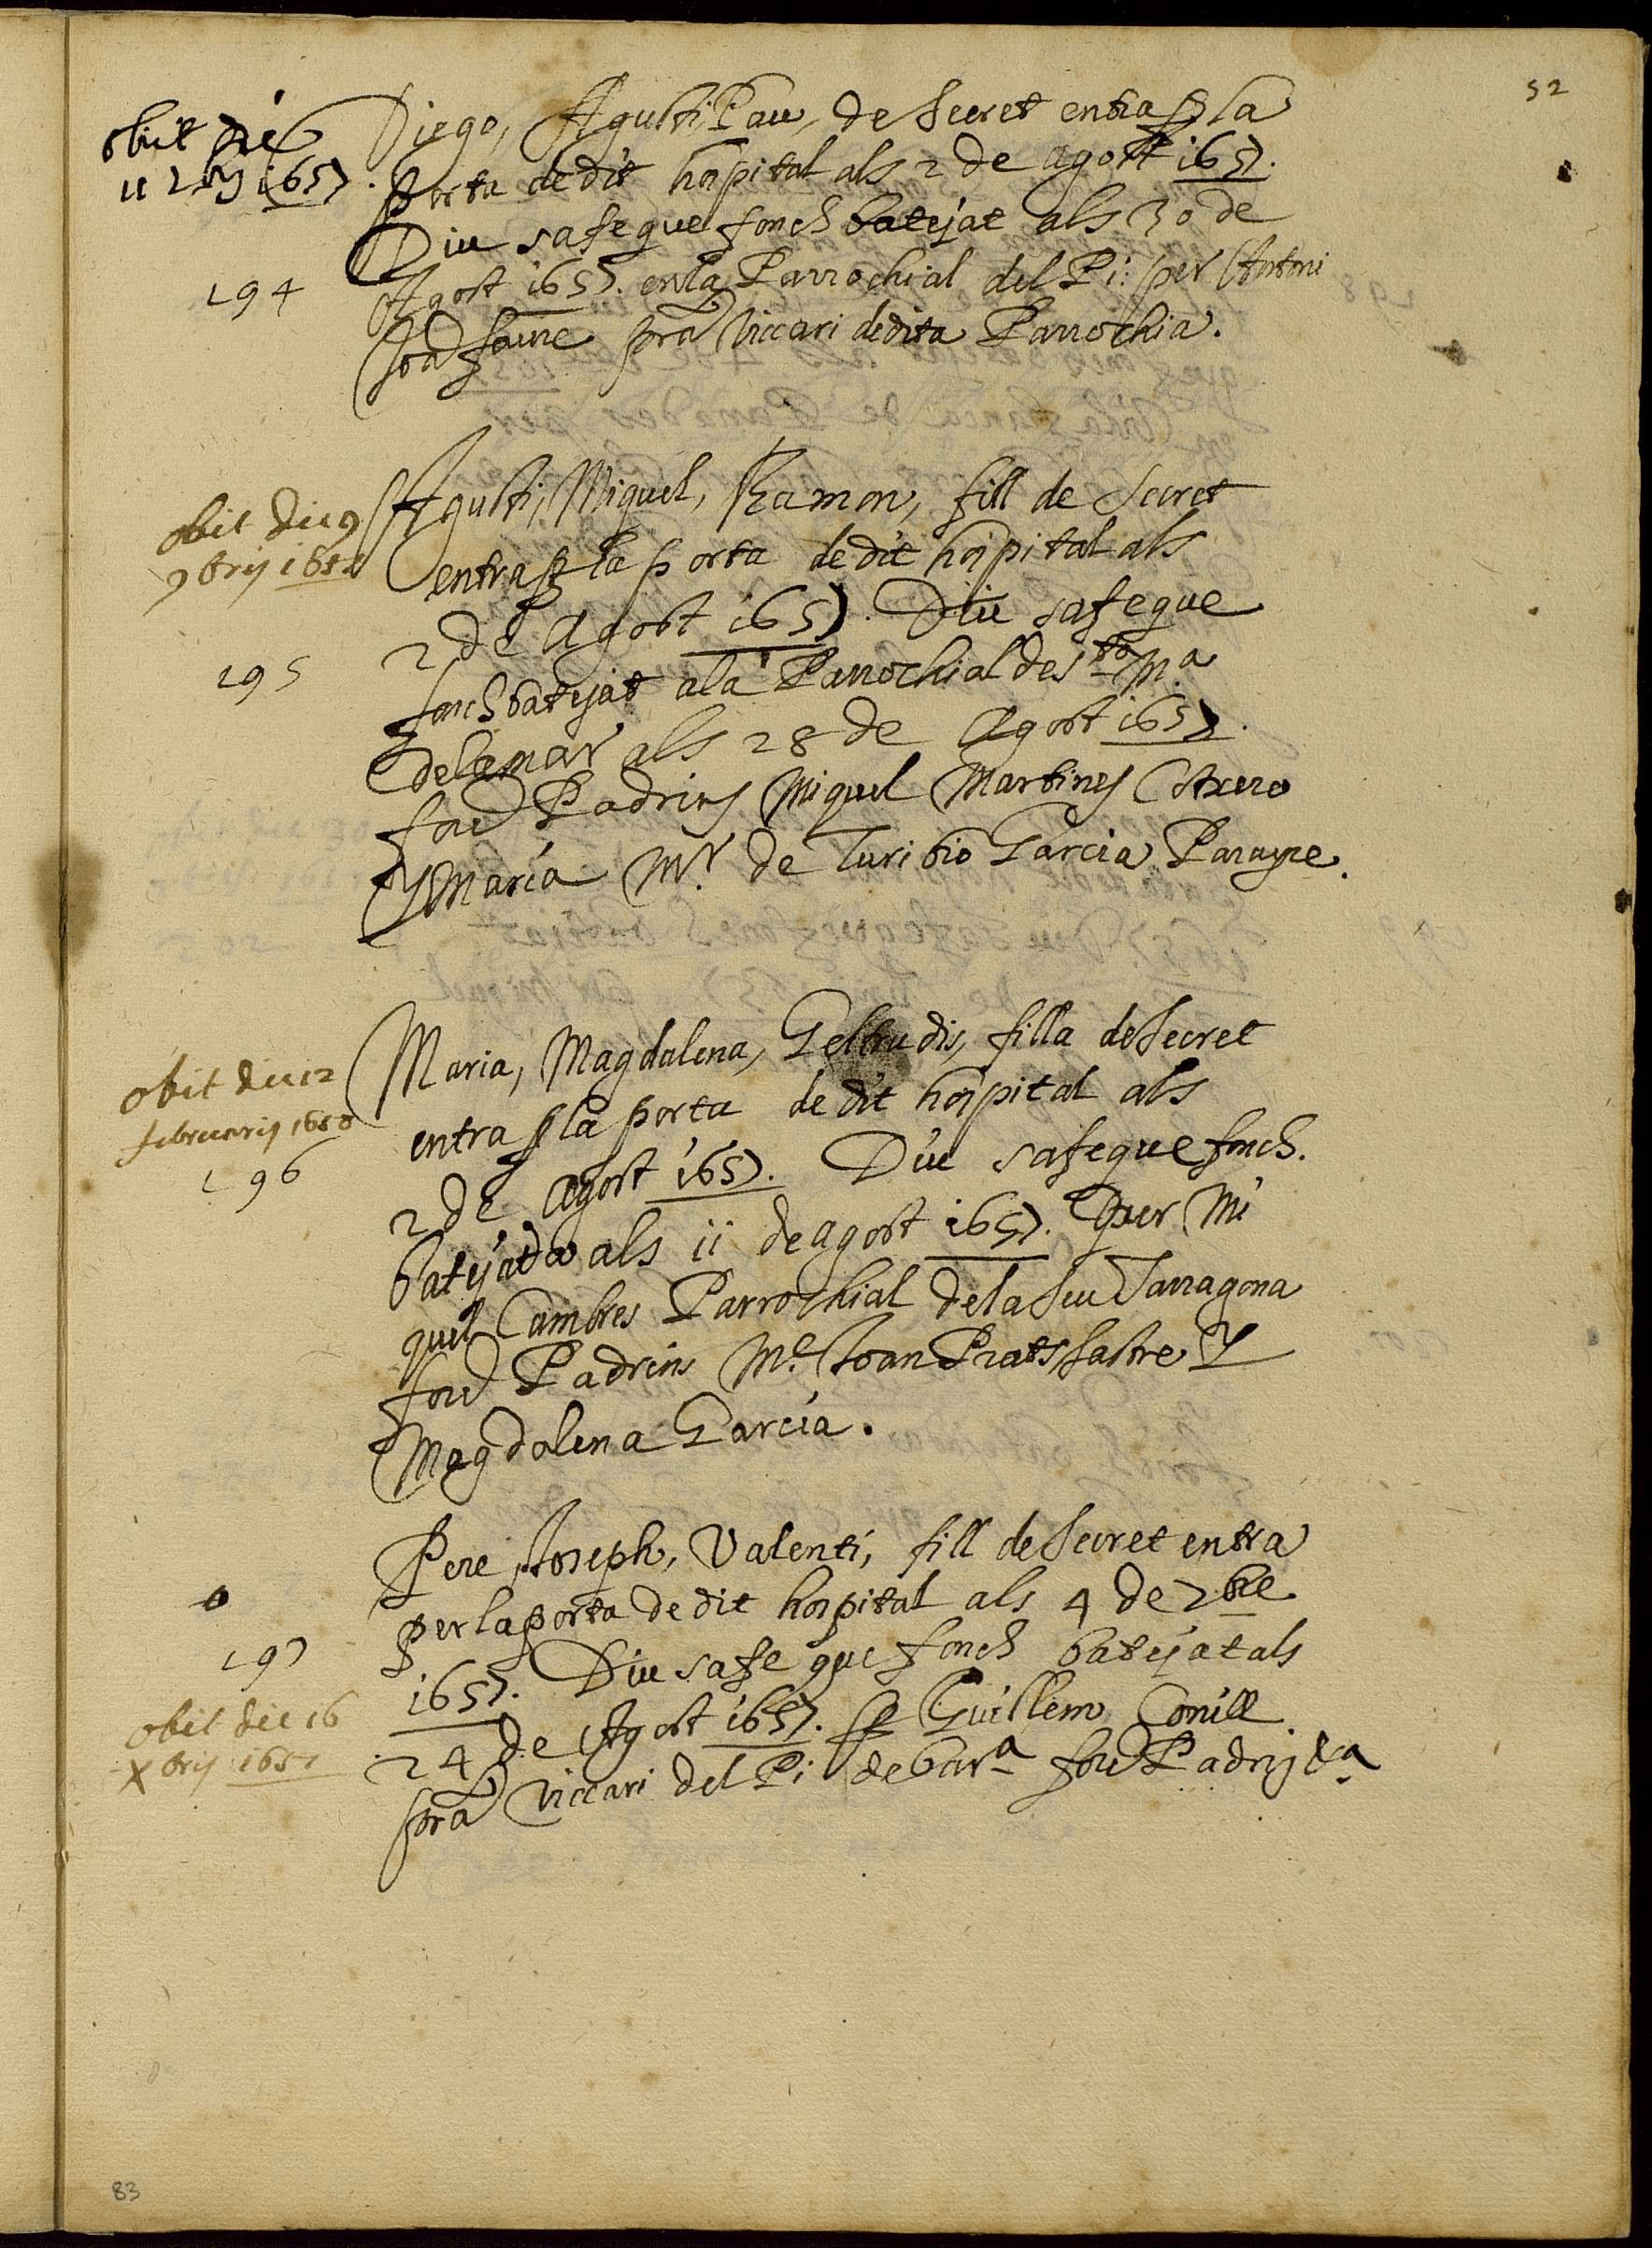 52
obiit die
11 7bris 1657.
Diego, Agusti, Pau, de secret entra per la
Porta de dit hospital als 2 de agost 1657.
Diu sa fe que fonch batejat als 30 de
194
Agost 1657. en la Parrochial del Pi: per Antoni
Joan prã Viccari de dita Parrochia.
obit die 9
9brij 1657
Agusti, Miquel, Ramon, fill de secret
entra per la porta de dit hospital als
2 de Agost 1657. Diu sa fe que
195
fonch batejat a la Parrochial de sta Ma
de la mar als 28 de Agost 1657.
fou Padrins Miquel Martines
Y Maria Mr. de Turibio Garcia Parayre.
obit die 12
februarij 1658
196
Maria, Magdalena, Geltrudis, filla de secret
entra per la porta de dit hospital als
2 de Agost 1657. Diu sa fe que fonch.
batejada als ii de agost 1657. Per Mi
quel Cambres Parrochial de la seu Tarragona
fou Padrins Me. Joan Prats sastre Y
Magdalena Garcia.
Pere, Joseph, Valenti, fill de secret entra
per la porta de dit hospital als 4 de 7bre
197
1657. Diu sa fe que fonch batejat als
obit die 16
Xbrij 1657
24 de Agost 1657. per Guillem Conill
prã Viccari del Pi de Bara fou Padrij &a
83